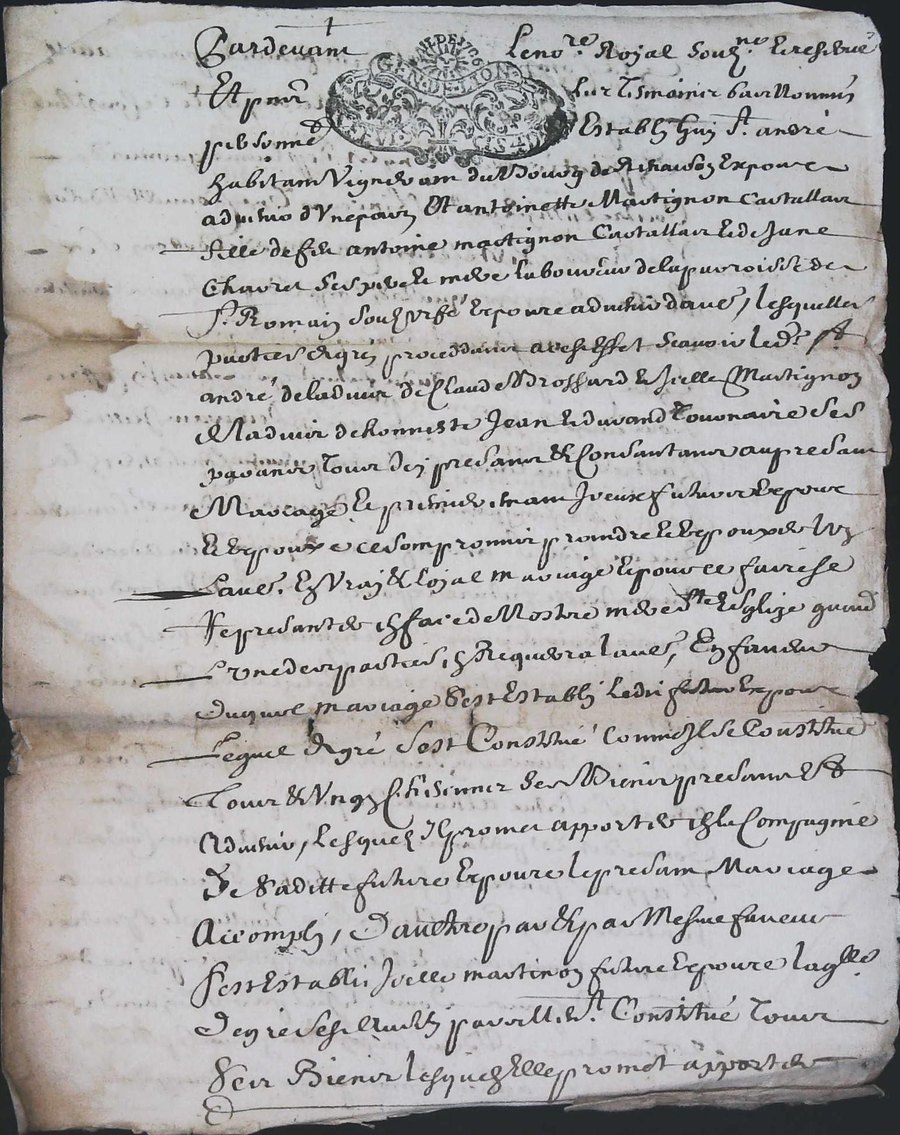 Pardevant le no.re Royal souz.ne reservé
GEN. DE LION
Et presents
personnes Establi Guy St. andré
habitant Vigneron du Bourg de Espoux
advenir d'Unepart Et antoinette Mastignon Castallair
fille de feu antoine mastignon Castallair Et de Jane
Charet ses pere Et mere laboureur de la parroisse de
St. Romain souz Urfé Espouse advenir d'autre, lesquelles
parties de gré procedant avec Effet scavoir led. St.
andré de ladvis de Claude Brossard Et Jcelle Mastignon
de ladvis de honneste Jean Durand ses
tous Jcy presants Et Consentants au presant
Mariage Et premierement Jceux futurs Espoux
Et Espouze ce sont promis prendre Et Espouzer Un
Lautre En Vray Et loyal mariage Et pour ce faire se
presanter En face de Nostre mere Ste Esglize quand
L'une des parties En Requerera lautre, En faveur
duquel mariage s'est Establi Ledit futur Espoux
Lequel de gré s'est Constitué comme Jl se Constitue
Tous Et Ung Chascuns ses Biens presants Et
Advenir, Lesquelz Jl promet apporter En la Compagnie
De sa ditte future Espouze le presant Mariage
Accompli, D'authre part Et par Mesme faveur
S'est Establie Jcelle martinon future Espouze laq.lle
de gré s'est Constitué Tous
Ses Biens lesquelz Elle promet apporter